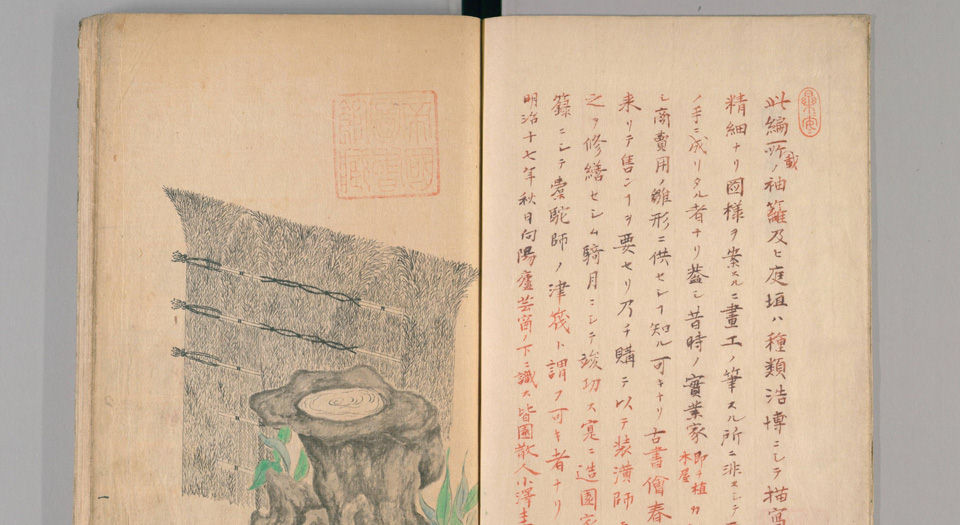 此編所載ノ袖籬及ヒ庭垣ハ種類浩博ニシテ描寫
精細ナリ図様ヲ案スルニ畫工ノ筆スル所ニ非スシテ
ノ手ニ成リタル者ナリ蓋シ昔時ノ實業家即チ植木屋カ
シ商費用ノ雛形ニ供セシヿ知ル可キナリ古書儈春
来リテ售ンヿヲ要セリ乃チ購テ以テ装潢師ニ
之ヲ修繕セシム騎月ニシテ竣功ス寔ニ造園家
籙ニシテ橐駝師ノ津筏ト謂フ可キ者ナリ
明治十七年秋日向陽廬芸窗ノ下ニ識ス皆園散人小澤圭
帝國
圖書
館藏